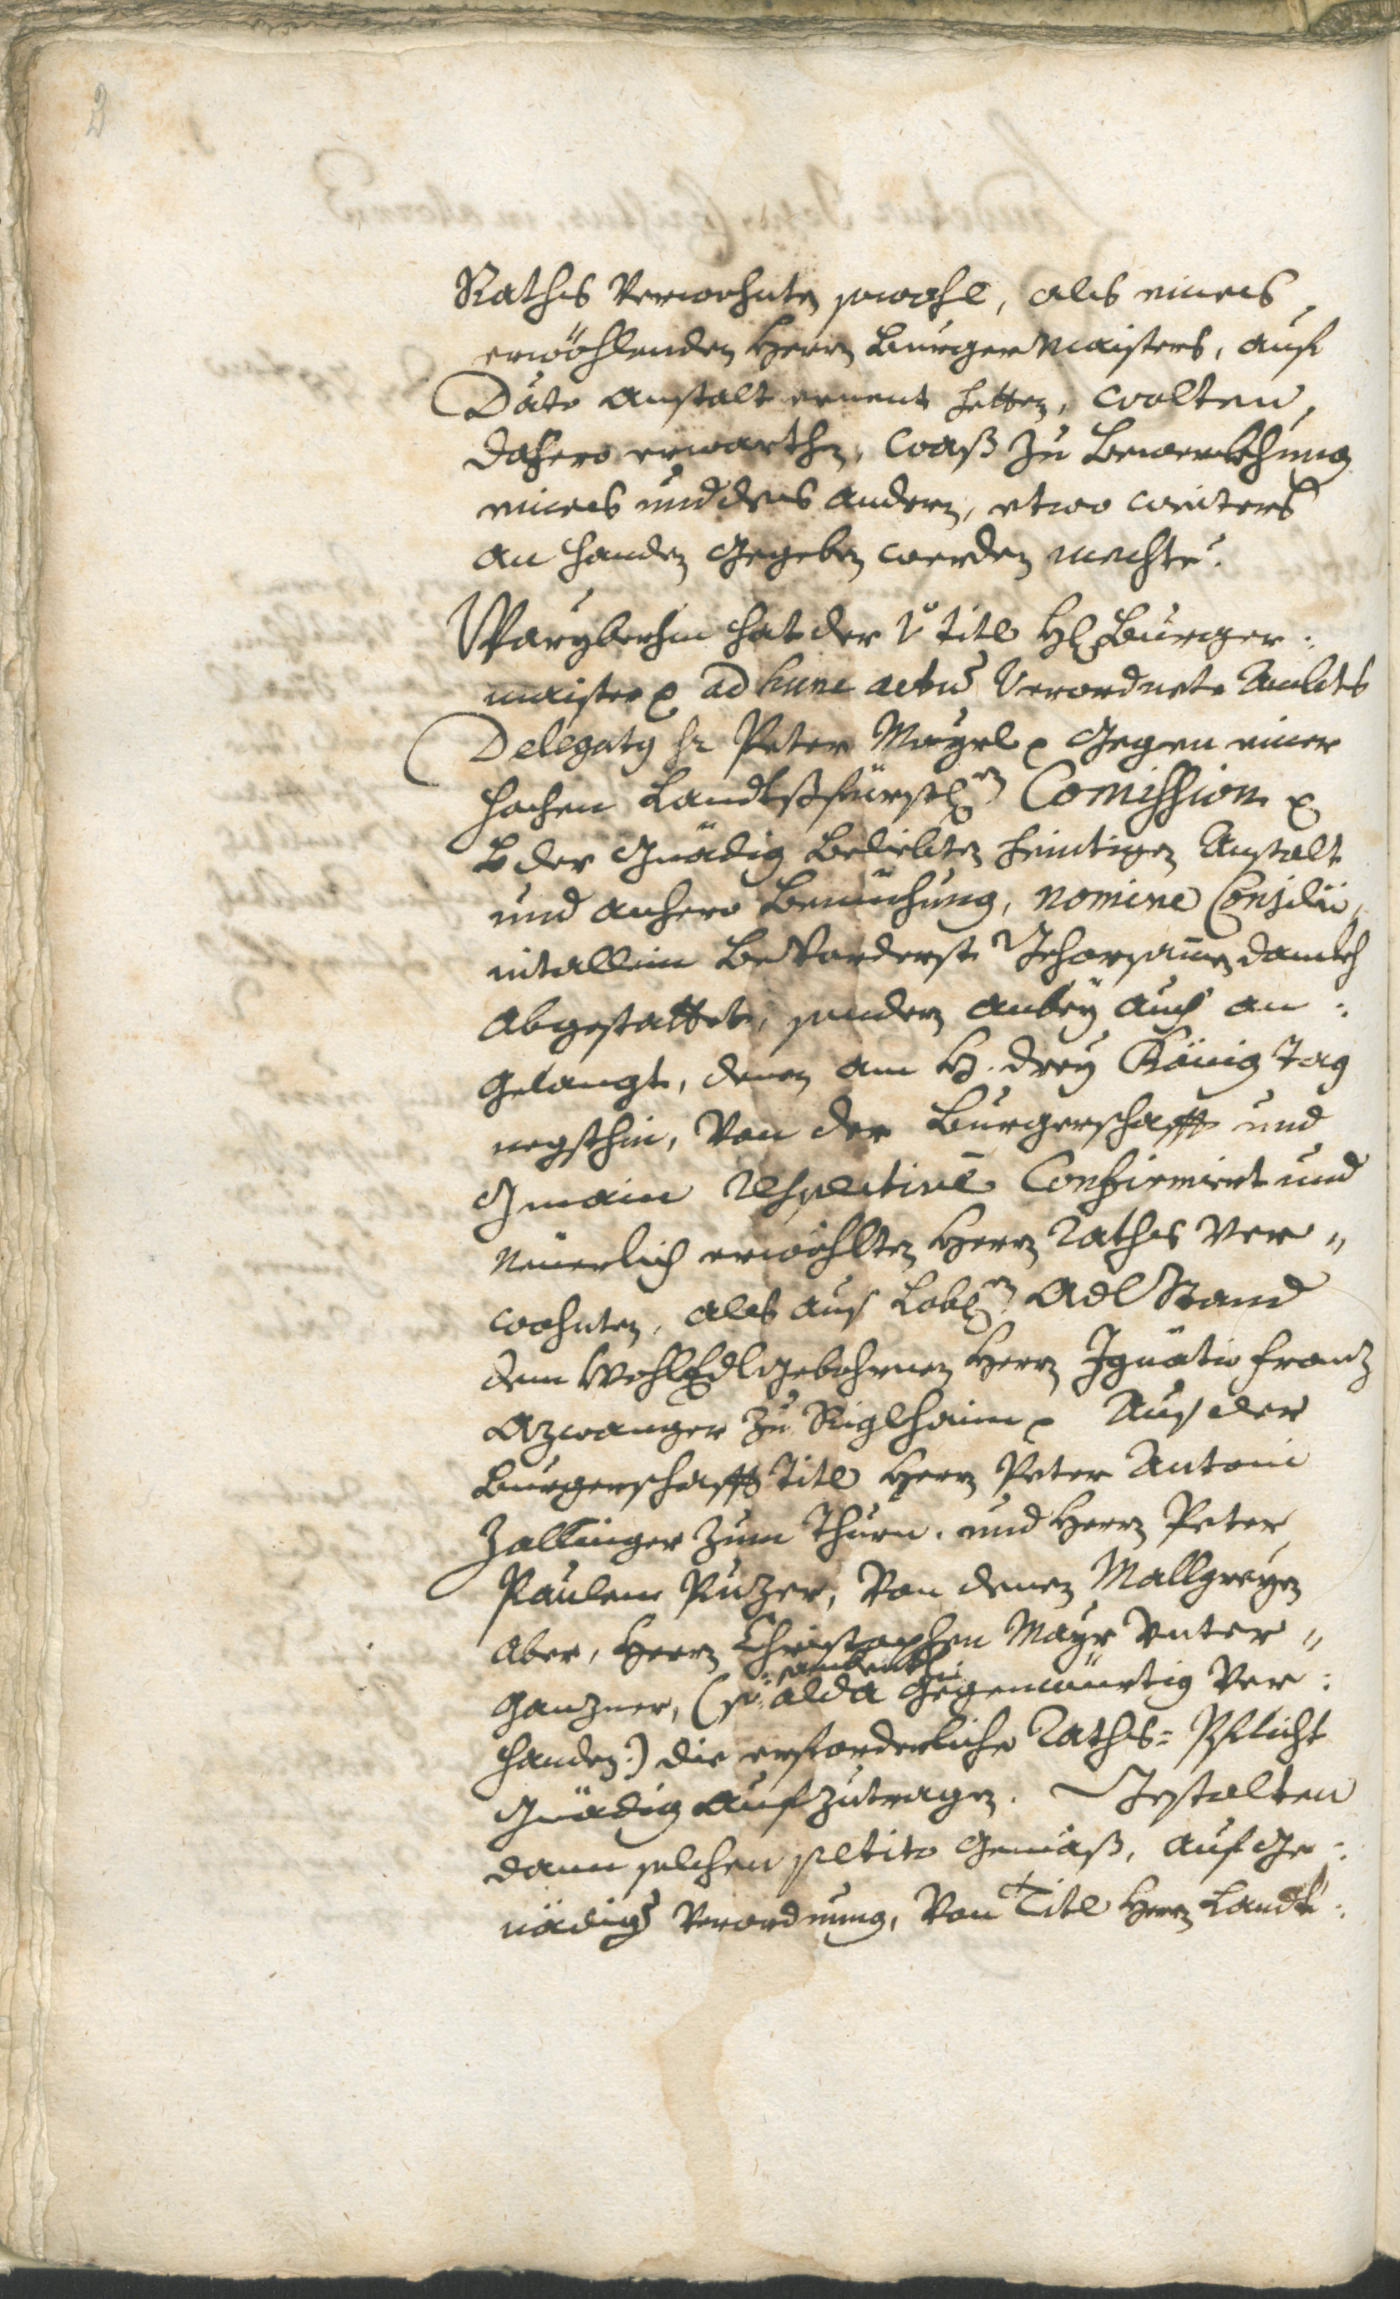 2
Raths Verwohnte sowohl, als eines
erwöhlenden Herrn Burgermaisters, auf
Dato Anstalt ernent hetten, wolten,
dahero erwarthen, waß zu bewerkhung
eines und des andern, etwo weiters
an handen gegeben werden mechte.
hat der Titl H Burger:
maister ad hunc actum Verordnete Ambts
Delegatus hr Peter Mayrl gegen einer
hochen Landtsfürstl Comission
der gnädig beliebten heintigen Anstalt
und anhero bemüehung, nomine Consilii,
nitallein beVorderst gehorsamen danckh
abgestattet, sondern anbey auch an:
gelangt, denen am H. drey König Tag
negsthin, Von der Burgerschafft und
Gmain respective Confirmirt und
neuerlich erwöhlten Herrn Raths Ver„
wohnten, als aus Lobl Adl Stand
dem WohlEdlgebohrnen Herrn Ignatio Franz
Azwanger zu Siglhaim Aus der
Burgerschafft Titl Herrn Peter Antoni
Zallinger zum Thurn. und Herrn Peter
Paulem Puzer, Von denen Mallgreyen
aber, Herrn Christophen Mayr Unter„
ganzner, (so alda gegenwürtig Ver:
handen:) die erforderliche Raths=Pflicht
gnädig aufzutragen. Gestalten
dann solchem petito gemäß, auf ge:
nädige Verordnung, Von Titl Herrn Landt: